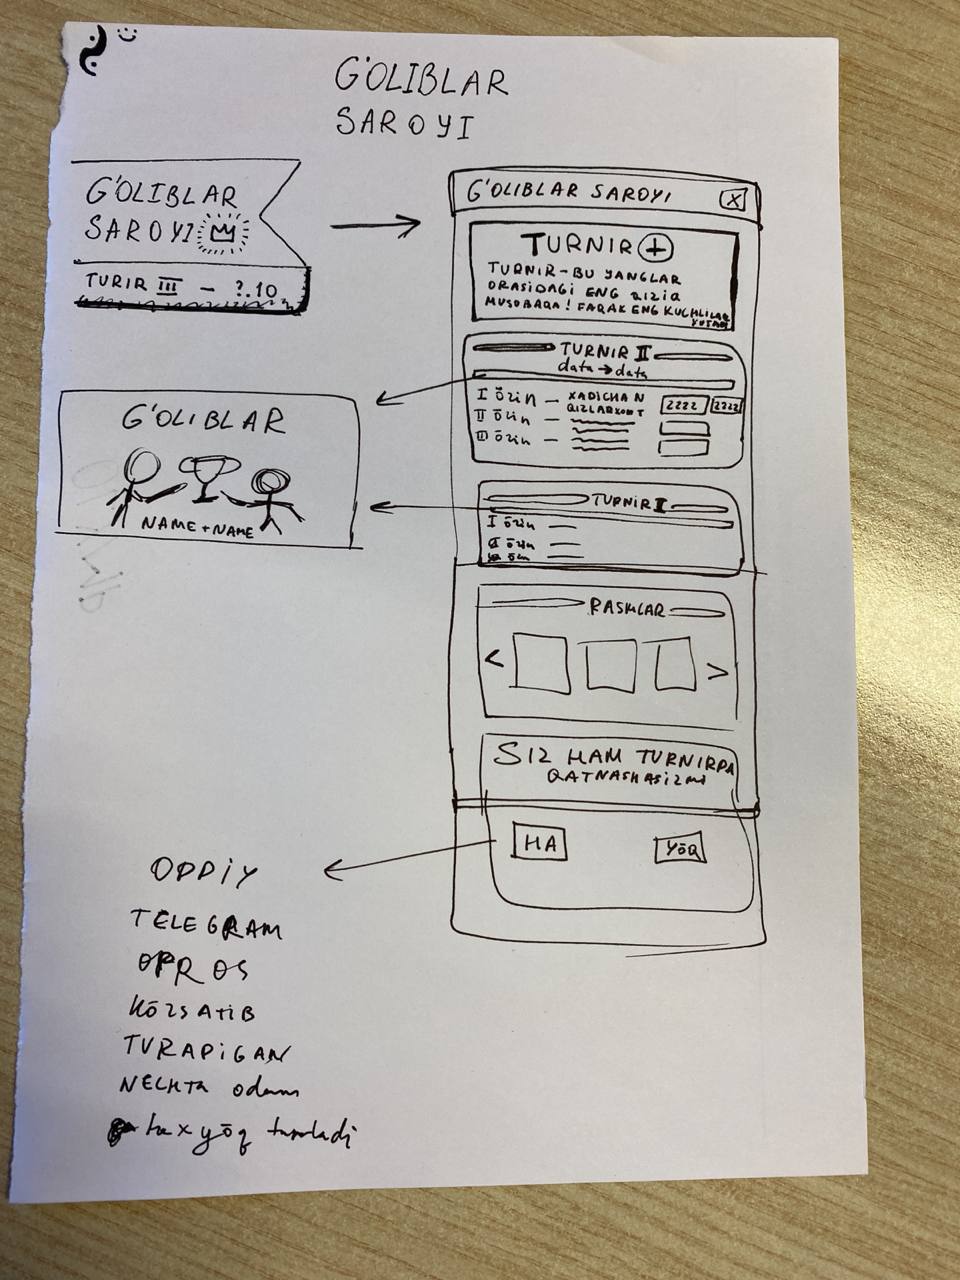 G'OLIBLAR
SAROYI
G'OLIBLAR
SAROYI
TURIR III - ?.10
G'OLIBLAR SAROYI X
TURNIR +
TURNIR-BU YANGLAR
ORASIDAGI ENG QIZIQ
MUSOBAQA! FAQAK ENG KUCHLILAR
TURNIR II
data → data
I ōrin - XADICHAN
II ōrin -
III ōrin -
2222 2222
G'OLIBLAR
NAME + NAME
TURNIR I
I ōrin
ōrin
RASMLAR
< >
SIZ HAM TURNIRDA
QATNASHASIZMI
HA YŌQ
ODDIY
TELEGRAM
OPROS
KŌRSATIB
TURADIGAN
NECHTA odam
yōq